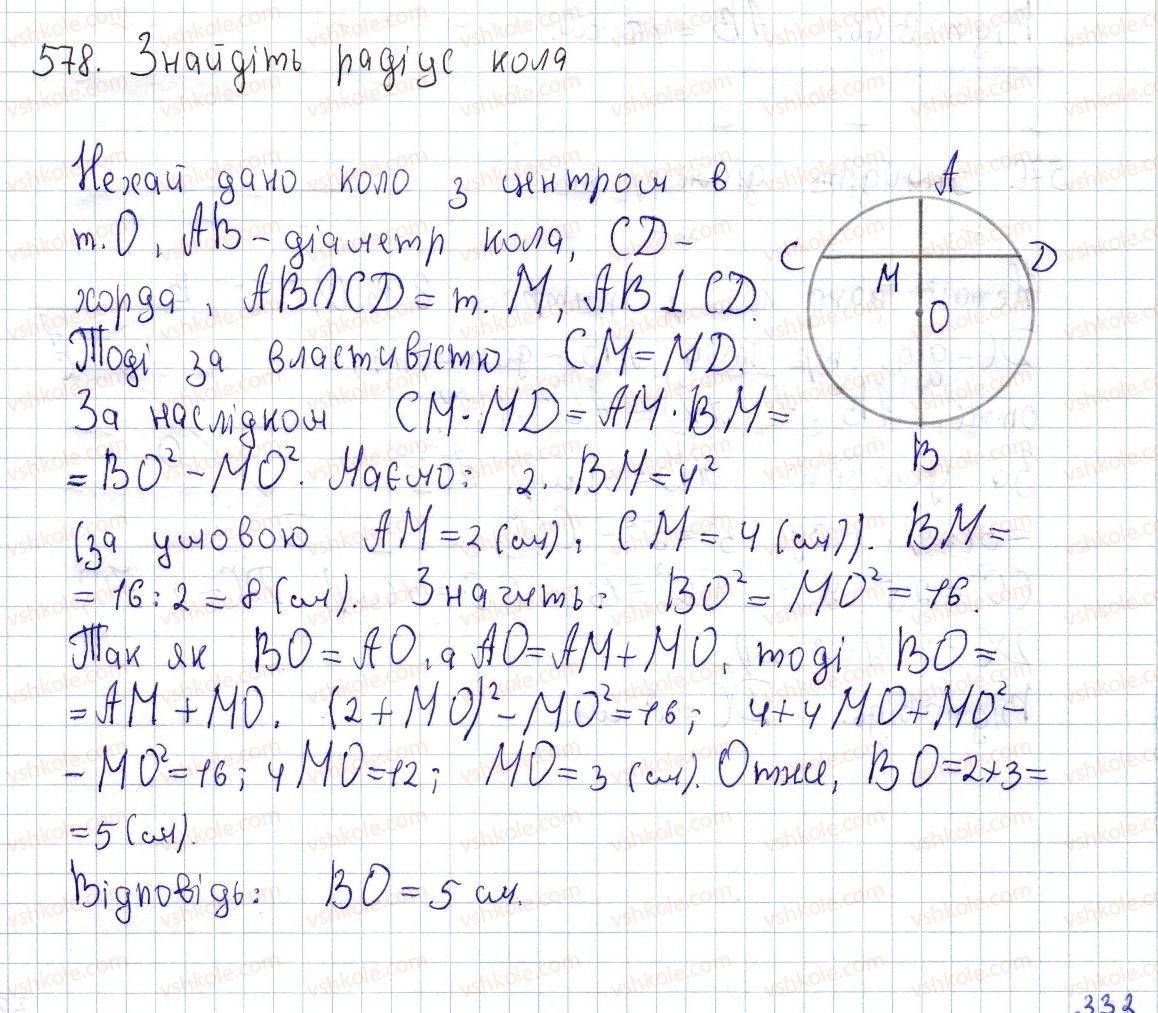 578. Знайдіть радіус кола
Нехай дано коло з центром в
т. О, AB - діаметр кола, CD -
хорда, AB∩CD = т. M, AB⊥CD.
Тоді за властивістю CM = MD.
За наслідком CM · MD = AM · BM =
= BO² - MO². Маємо: 2. BM = 4²
(за умовою AM = 2 (см), CM = 4 (см)). BM =
= 16 : 2 = 8 (см). Значить: BO² = MO² = 16.
Так як BO = AO, а AO = AM + MO, тоді BO =
= AM + MO. (2 + MO)² - MO² = 16; 4 + 4MO + MO² -
- MO² = 16; 4MO = 12; MO = 3 (см). Отже, BO = 2 + 3 =
= 5 (см).
Відповідь: BO = 5 см.
A
C
D
M
O
B
332